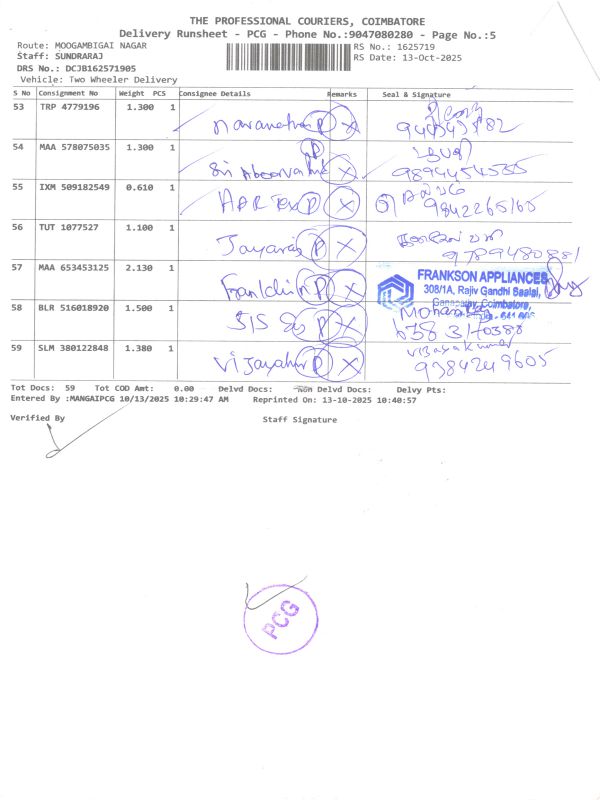 THE PROFESSIONAL COURIERS, COIMBATORE
Delivery Runsheet - PCG - Phone No.:9047080280 - Page No.:5
Route: MOOGAMBIGAI NAGAR
Staff: SUNDRARAJ
DRS No.: DCJB162571905
Vehicle: Two Wheeler Delivery
RS No.: 1625719
RS Date: 13-Oct-2025
S No Consignment No Weight PCS Consignee Details Remarks Seal & Signature
53 TRP 4779196 1.300 1 P X
54 MAA 578075035 1.300 1 P X 9894454535
55 IXM 509182549 0.610 1 P X 9842265165
56 TUT 1077527 1.100 1 P X
57 MAA 653453125 2.130 1 Franklin P X
FRANKSON APPLIANCES
308/1A, Rajiv Gandhi Saalai,
Ganapathy, Coimbatore,
58 BLR 516018920 1.500 1 P X
59 SLM 380122848 1.380 1 P X Vijayakumar
9384249605
Tot Docs: 59 Tot COD Amt: 0.00 Delvd Docs: Non Delvd Docs: Delvy Pts:
Entered By :MANGAIPCG 10/13/2025 10:29:47 AM Reprinted On: 13-10-2025 10:40:57
Verified By Staff Signature
PCG